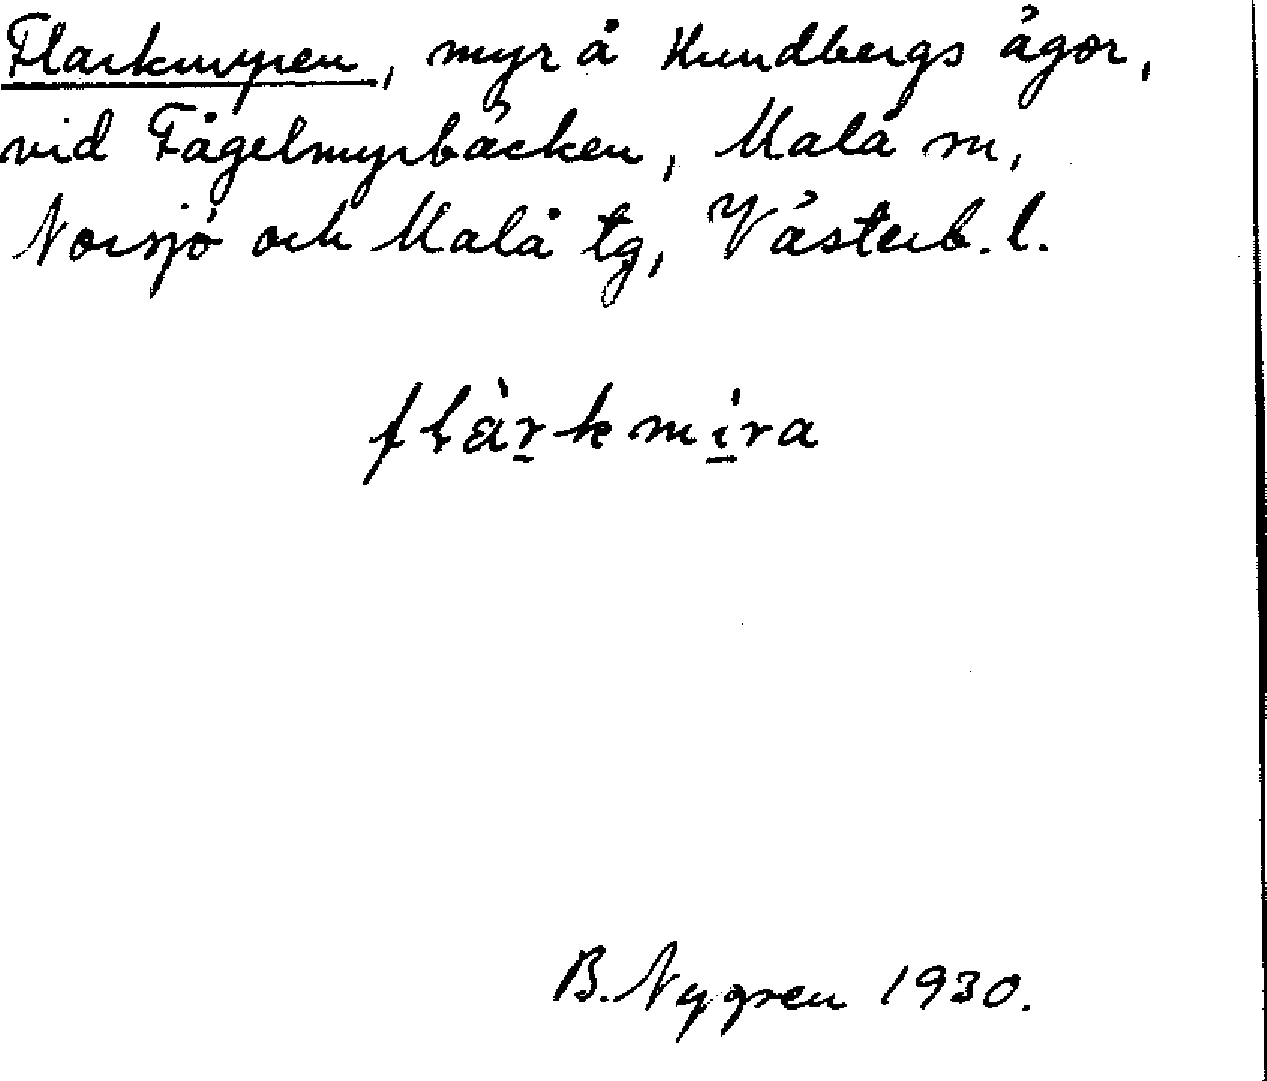 Flarkmyren, myr å Hundbergs ägor,
vid Fågelmyrbäcken, Malå sn,
Norsjö och Malå tg, Västerb. l.
flàrkmíra
B. Nygren 1930.